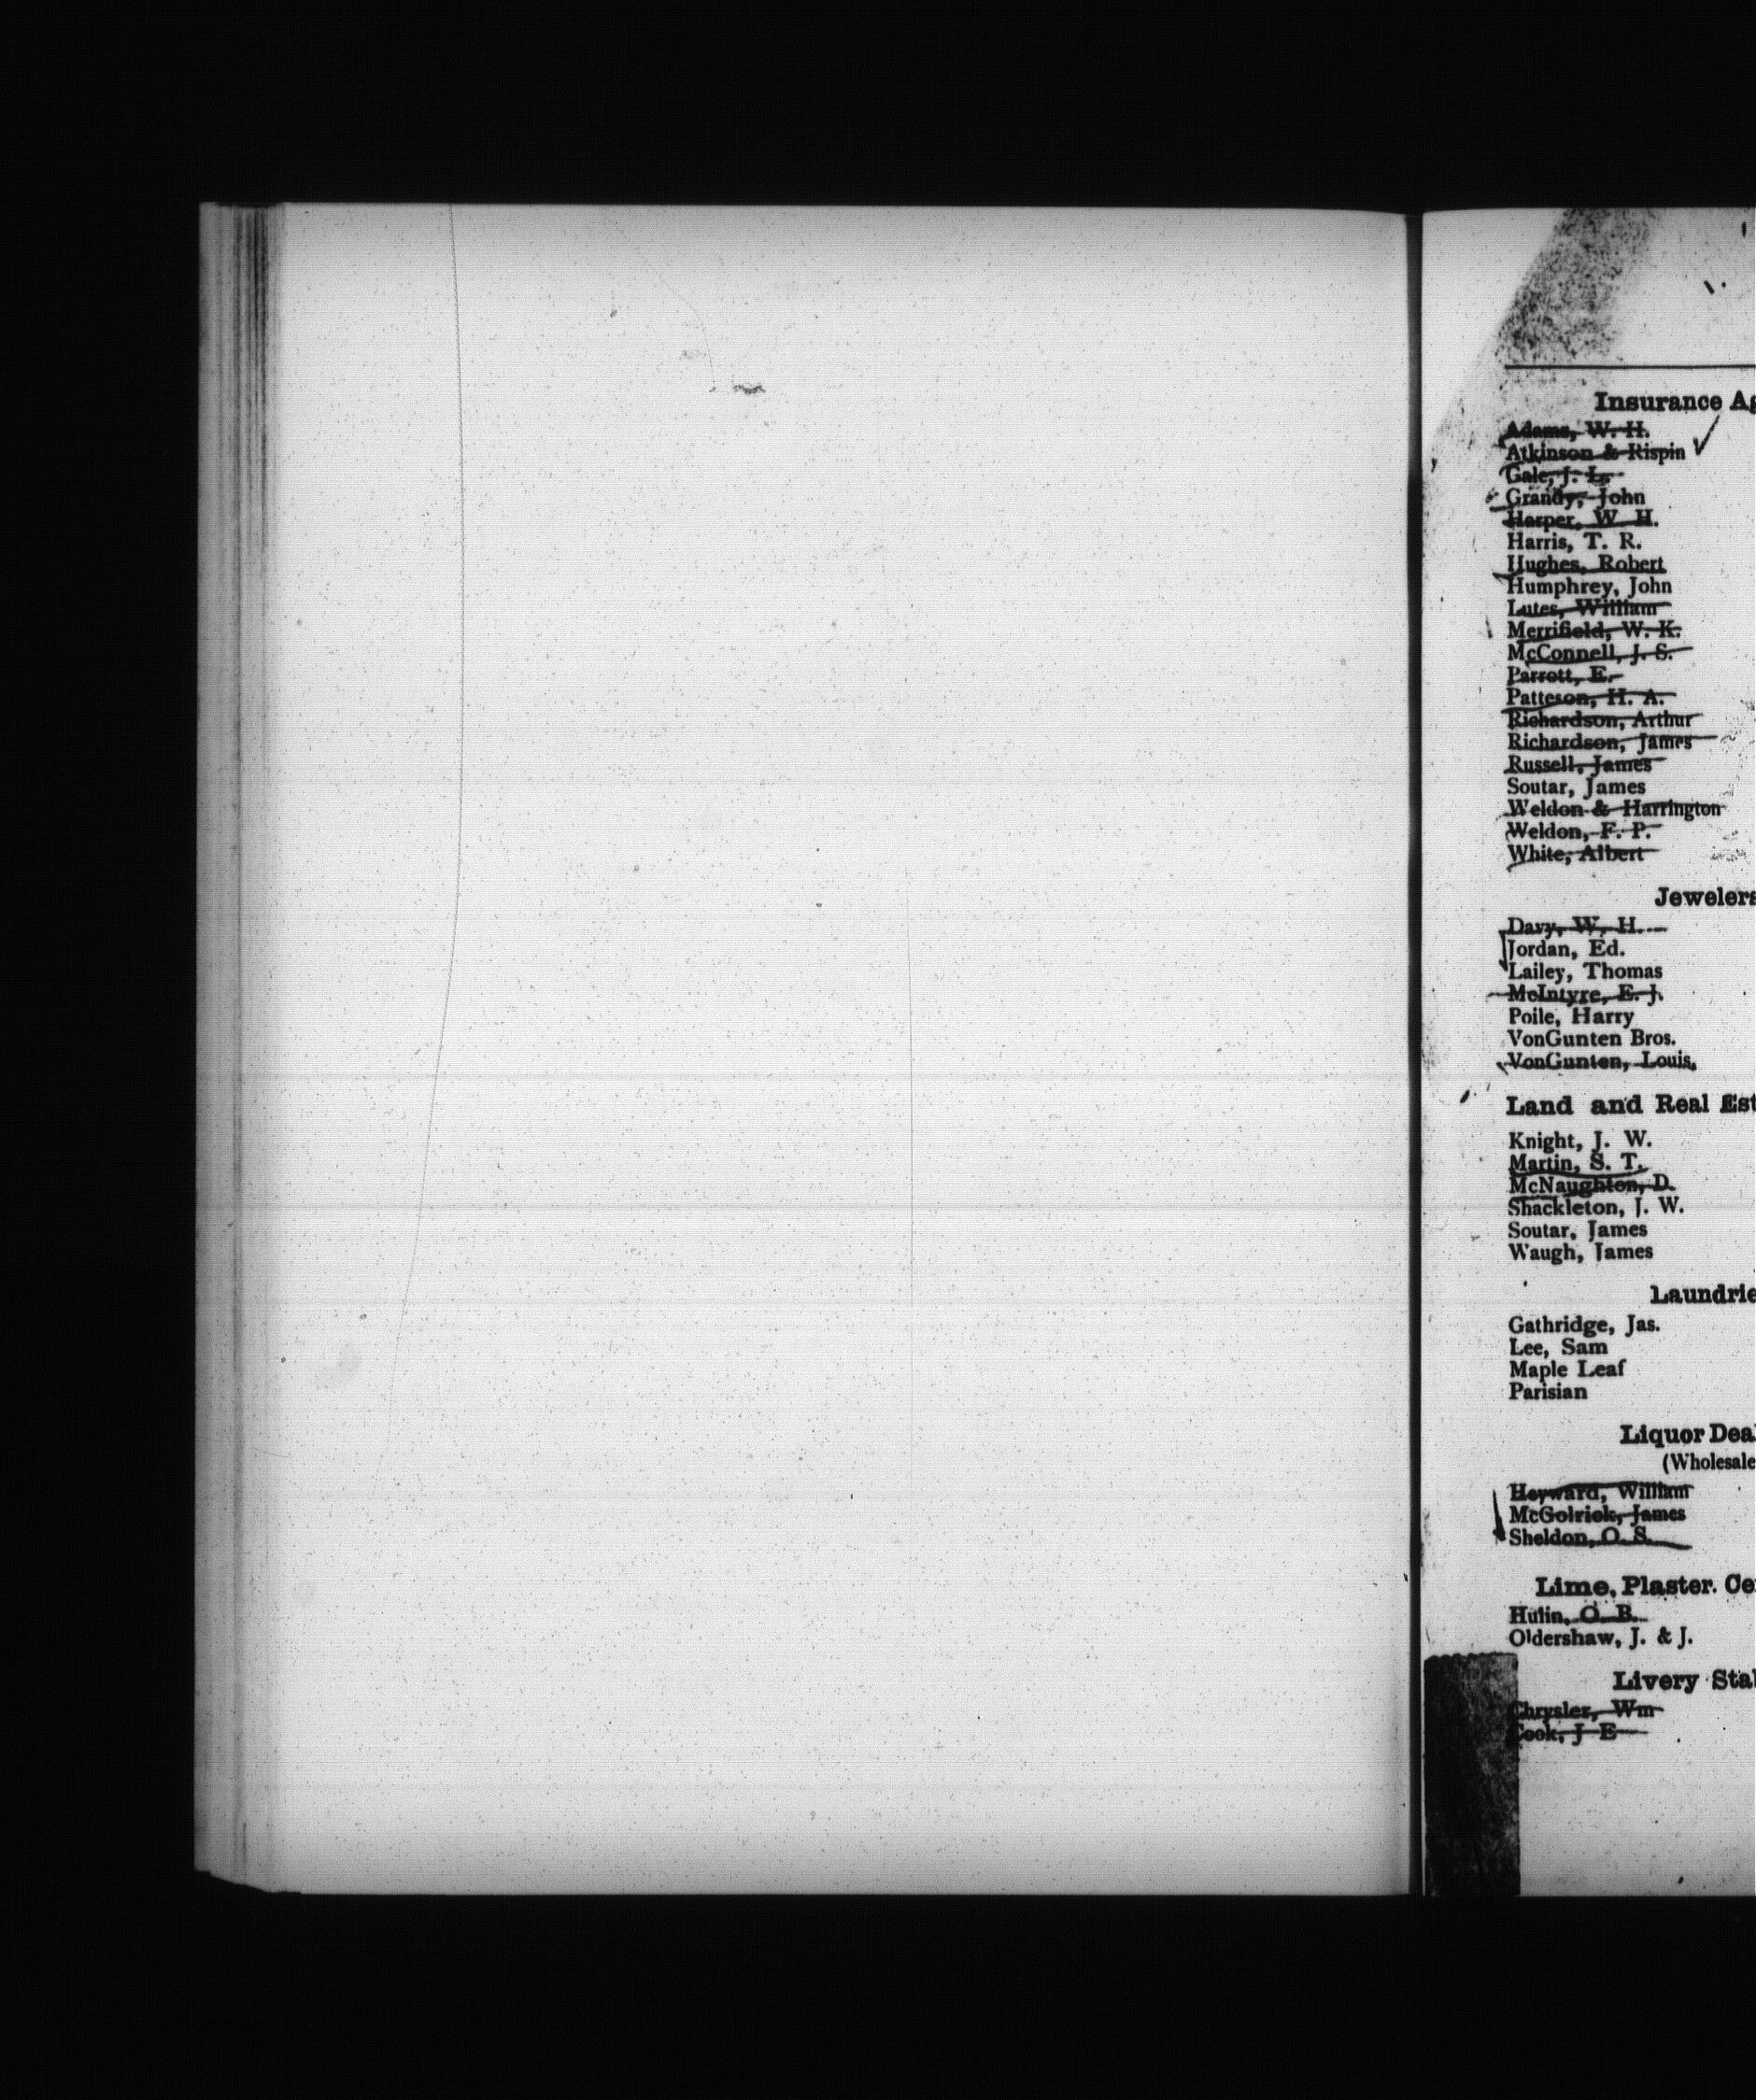 Insurance Ag
Adams, W. H.
Atkinson & Rispin
Gale, J. L.
Grandy, John
Harper, W. H.
Harris, T. R.
Hughes, Robert
Humphrey, John
Lutes, William
Merrifield, W. K.
McConnell, J. S.
Parrott, E.
Patteson, H. A.
Richardson, Arthur
Richardson, James
Russell, James
Soutar, James
Weldon & Harrington
Weldon, F. P.
White, Albert
Jewelers
Davy, W. H.
Jordan, Ed.
Lailey, Thomas
McIntyre, E. J.
Poile, Harry
VonGunten Bros.
VonGunten, Louis,
Land and Real Est
Knight, J. W.
Martin, S. T.
McNaughton, D.
Shackleton, J. W.
Soutar, James
Waugh, James
Laundrie
Gathridge, Jas.
Lee, Sam
Maple Leaf
Parisian
Liquor Dea
(Wholesale
Heyward, William
McGolrick, James
Sheldon, O. S.
Lime, Plaster. Ce
Hulin, O. B.
Oldershaw, J. & J.
Livery Stal
Chrysler, Wm
Cook, J E